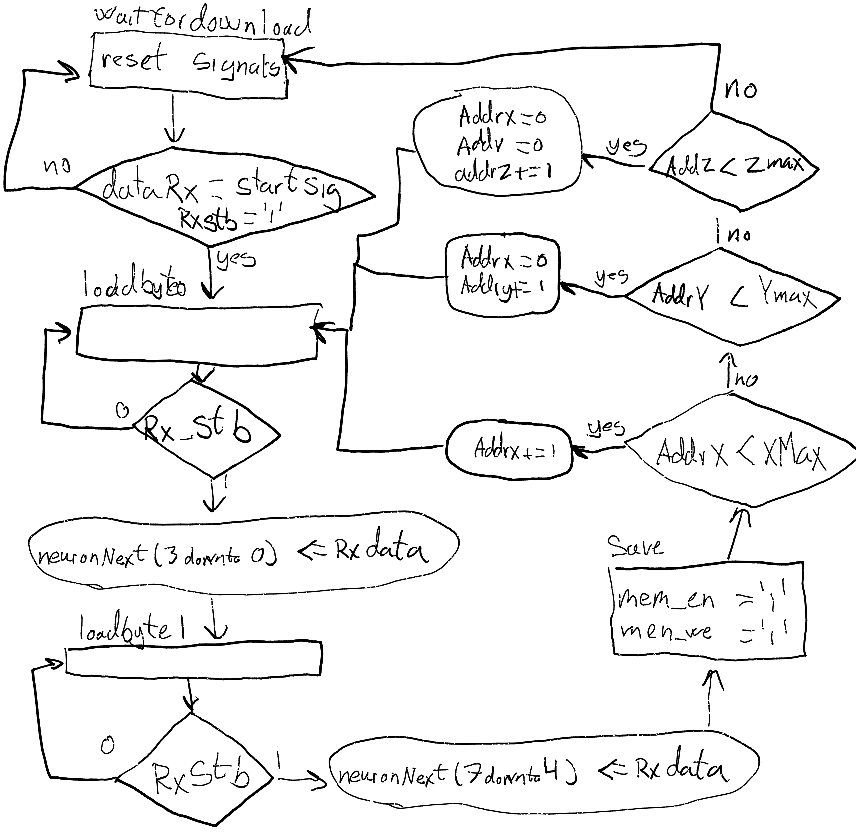 waitfordownload
reset signals
no
dataRx = startsig
Rxstb = '1'
yes
loadbyte0
0
Rx_stb
1
neuronNext (3 downto 0) <= Rx data
loadbyte1
0
Rx Stb
1
neuronNext (7 downto 4) <= Rx data
Save
mem_en = '1'
men_we = '1'
AddrX < XMax
yes
Addrx += 1
no
AddrY < Ymax
yes
Addrx = 0
Addry += 1
no
AddZ < Zmax
yes
Addrx = 0
Addr = 0
addrZ += 1
no